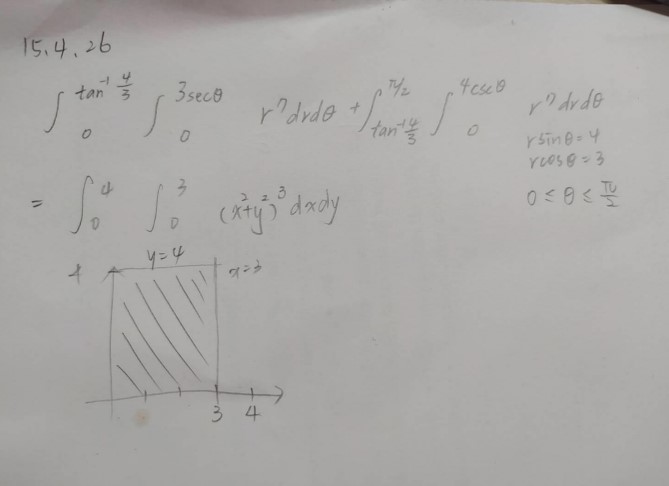 15.4.26
∫₀^{tan⁻¹ 4/3} ∫₀^{3secθ} r⁷drdθ + ∫_{tan⁻¹ 4/3}^{π/2} ∫₀^{4cscθ} r⁷drdθ
rsinθ=4
rcosθ=3
0≤θ≤π/2
= ∫₀⁴ ∫₀³ (x²+y²)³dxdy
y=4
x=3
3 4